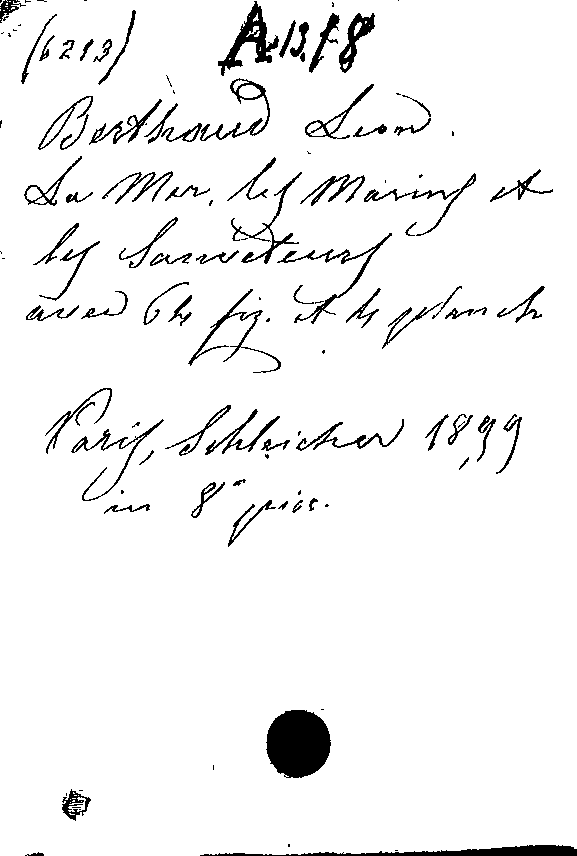 (6213) A.13.f.8
Berthaud Leon.
La Mer, les Marins et
les Sauveteurs
avec 64 fig. et 4 planch
Paris, Schleicher 1899
in 8° picc.